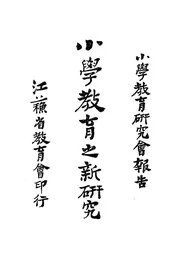 小學教育研究會報告
小學教育之新研究
江蘇省教育會印行